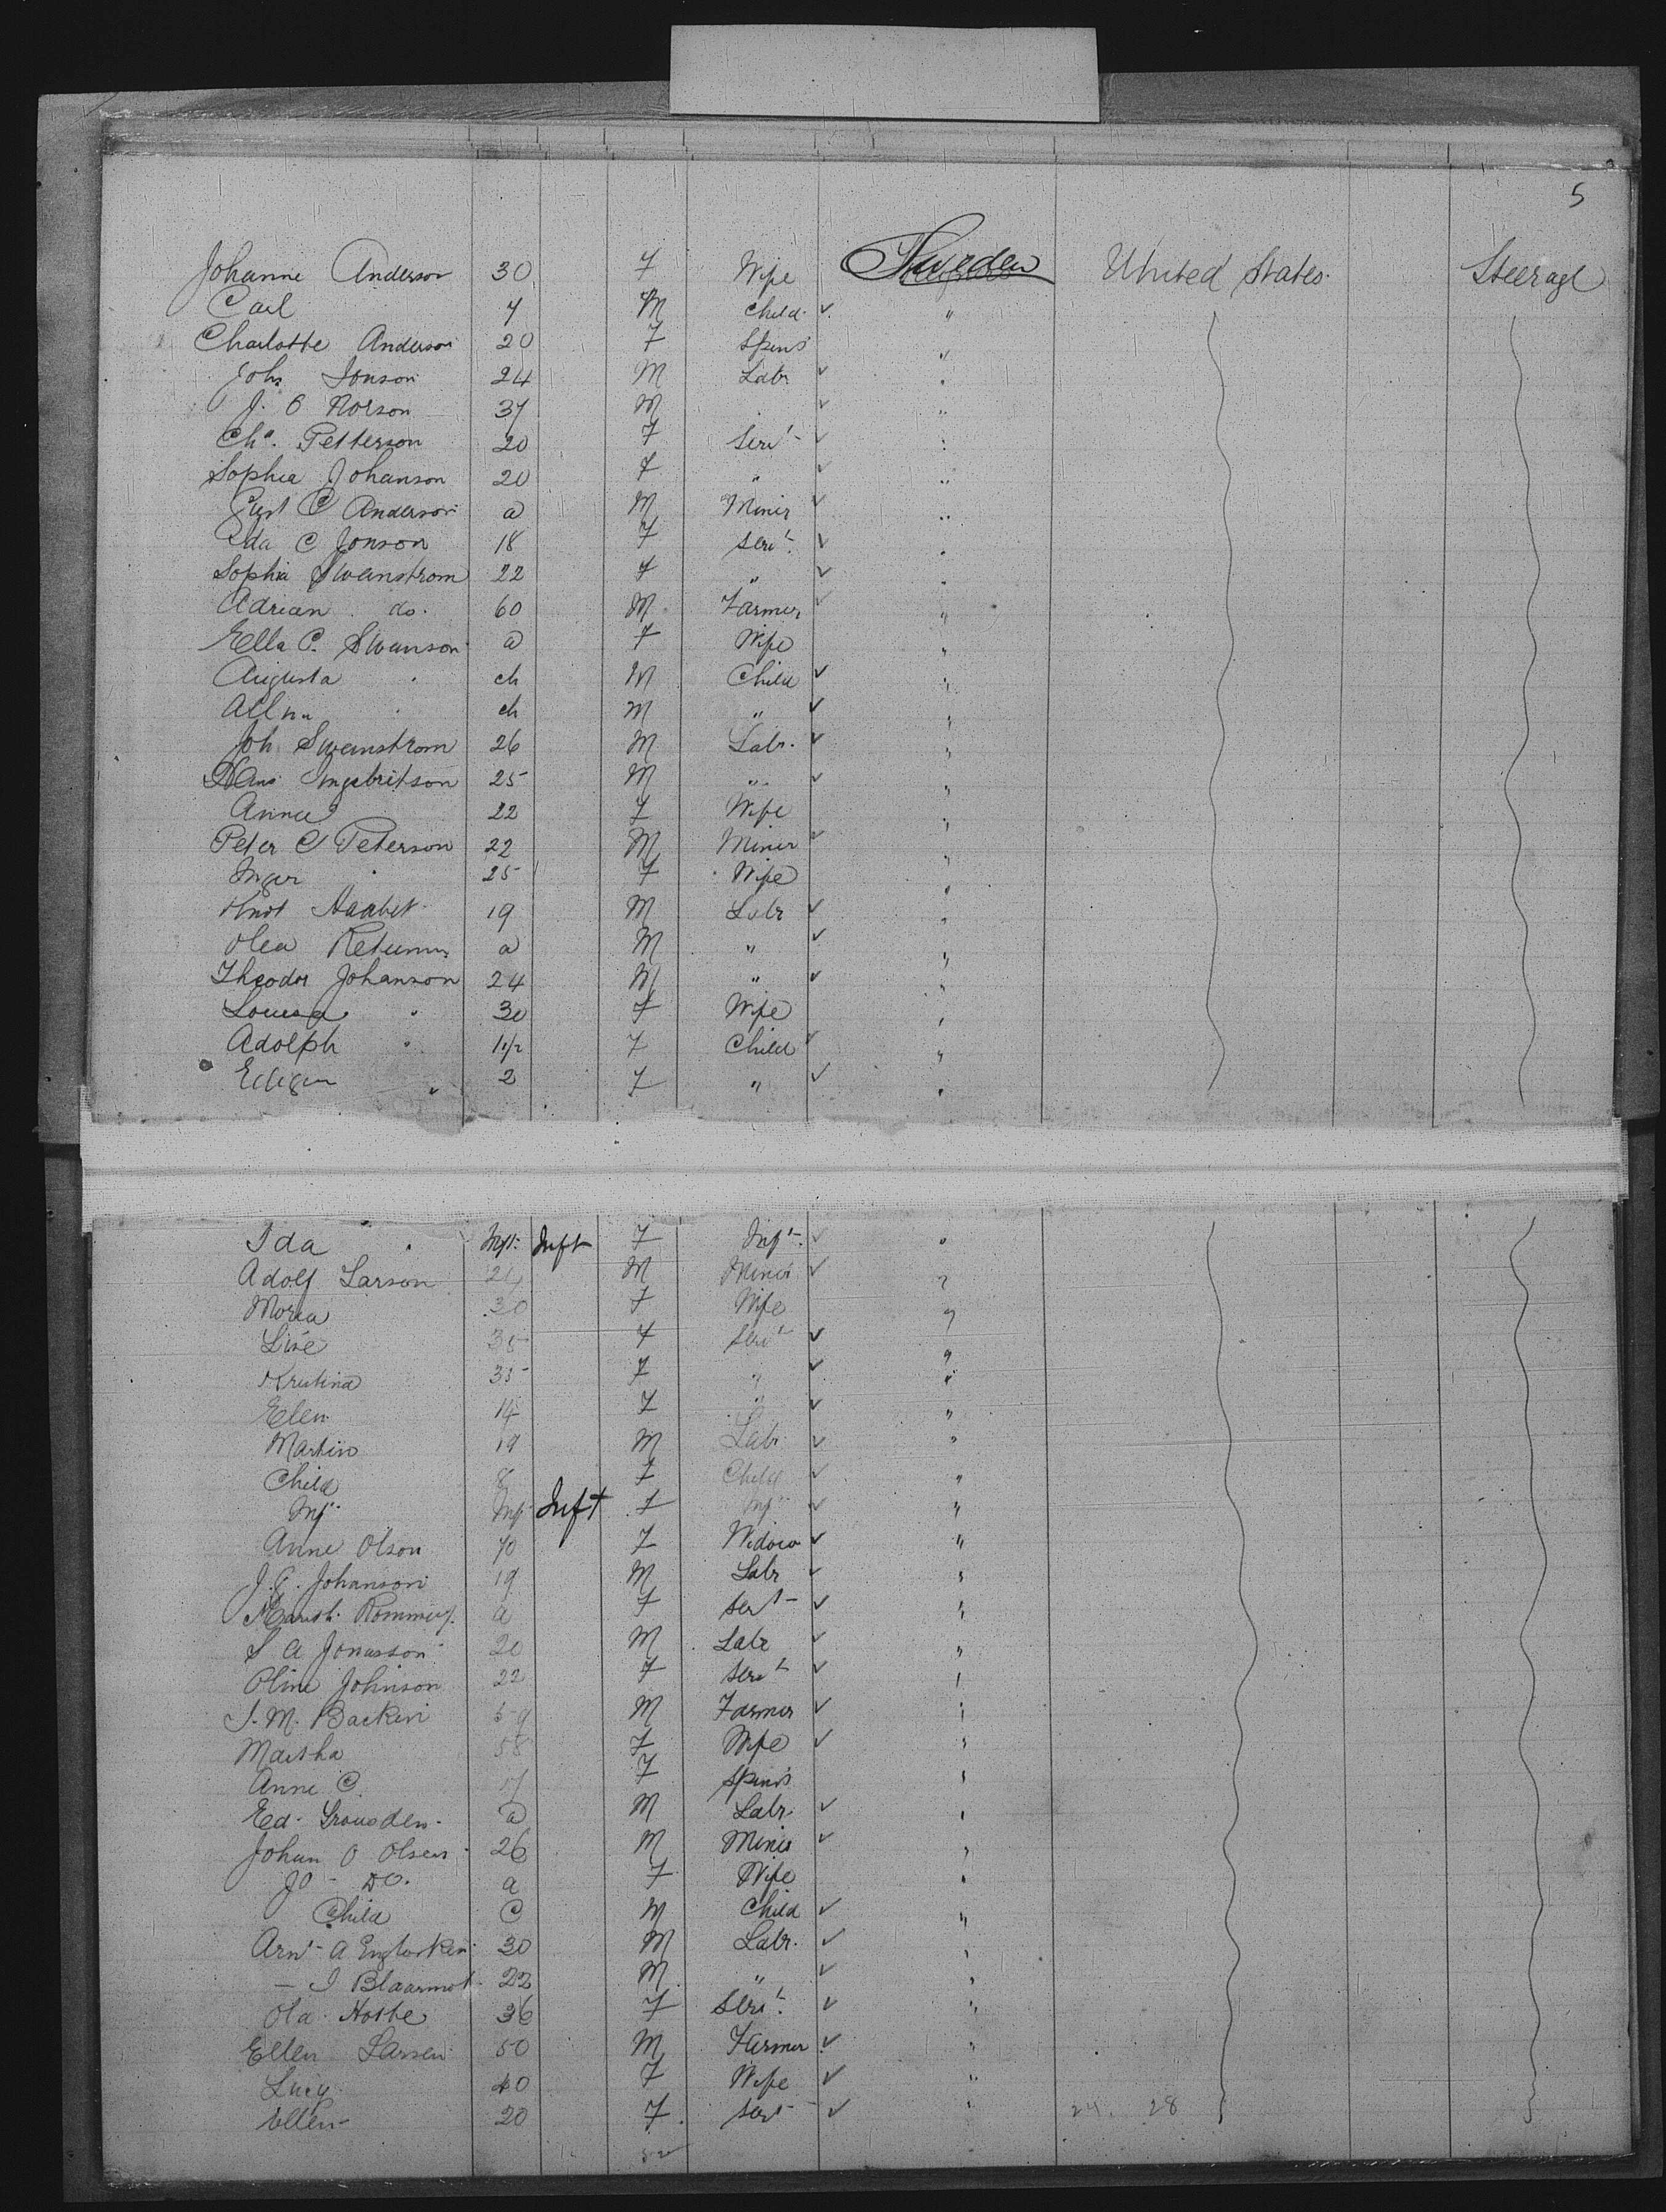 5
Johanne Anderson 30 F Wife Sweden United States Steerage
Carl 7 M Child "
Charlotte Anderson 20 F Spins "
John Jonson 24 M Labr "
J. O Norson 37 M " "
Chs. Petterson 20 F Servt "
Sophia Johanson 20 F " "
Gust C Anderson a M Miner "
Ida C Jonson 18 F Servt "
Sophia Swanstrom 22 F " "
Adrian do. 60 M Farmer "
Ella C. Swanson a F Wife "
Augusta " ch M Child "
" ch M " "
Joh Swanstrom 26 M Labr. "
Hans Ingebritson 25 M " "
Anna 22 F Wife "
Peter C Peterson 22 M Miner "
Inger " 25 F Wife "
Knut 19 M Labr "
Olea a M " "
Theodor Johanson 24 M " "
Louisa " 30 F Wife "
Adolph " 11/2 F Child "
" 2 F " "
Ida " Inft. Inft F Inft. "
Adolf Larson 24 M Miner "
Moria 30 F Wife "
Lise 35 F Servt "
Kristina 35 F " "
Elen 14 F " "
Martin 19 M Labr "
Child 8 F Child "
Inft Inft Inft F Inft "
Anne Olson 70 F Widow "
J. G. Johanson 19 M Labr "
a F Servt "
S A Jonasson 20 M Labr "
Oline Johnson 22 F Servt "
J. M. Backen 59 M Farmer "
Martha 58 F Wife "
Anne C. 17 F Spins "
Ed. a M Labr. "
Johan O Olsen 26 M Miner "
Jo - Do. a F Wife "
Child C M Child "
30 M Labr. "
— J Blaarmot 22 M " "
Ola 36 F Servt. "
Ellen Larsen 50 M Farmer "
Lucy 40 F Wife "
Ellen 20 F Servt " 24. 28
52